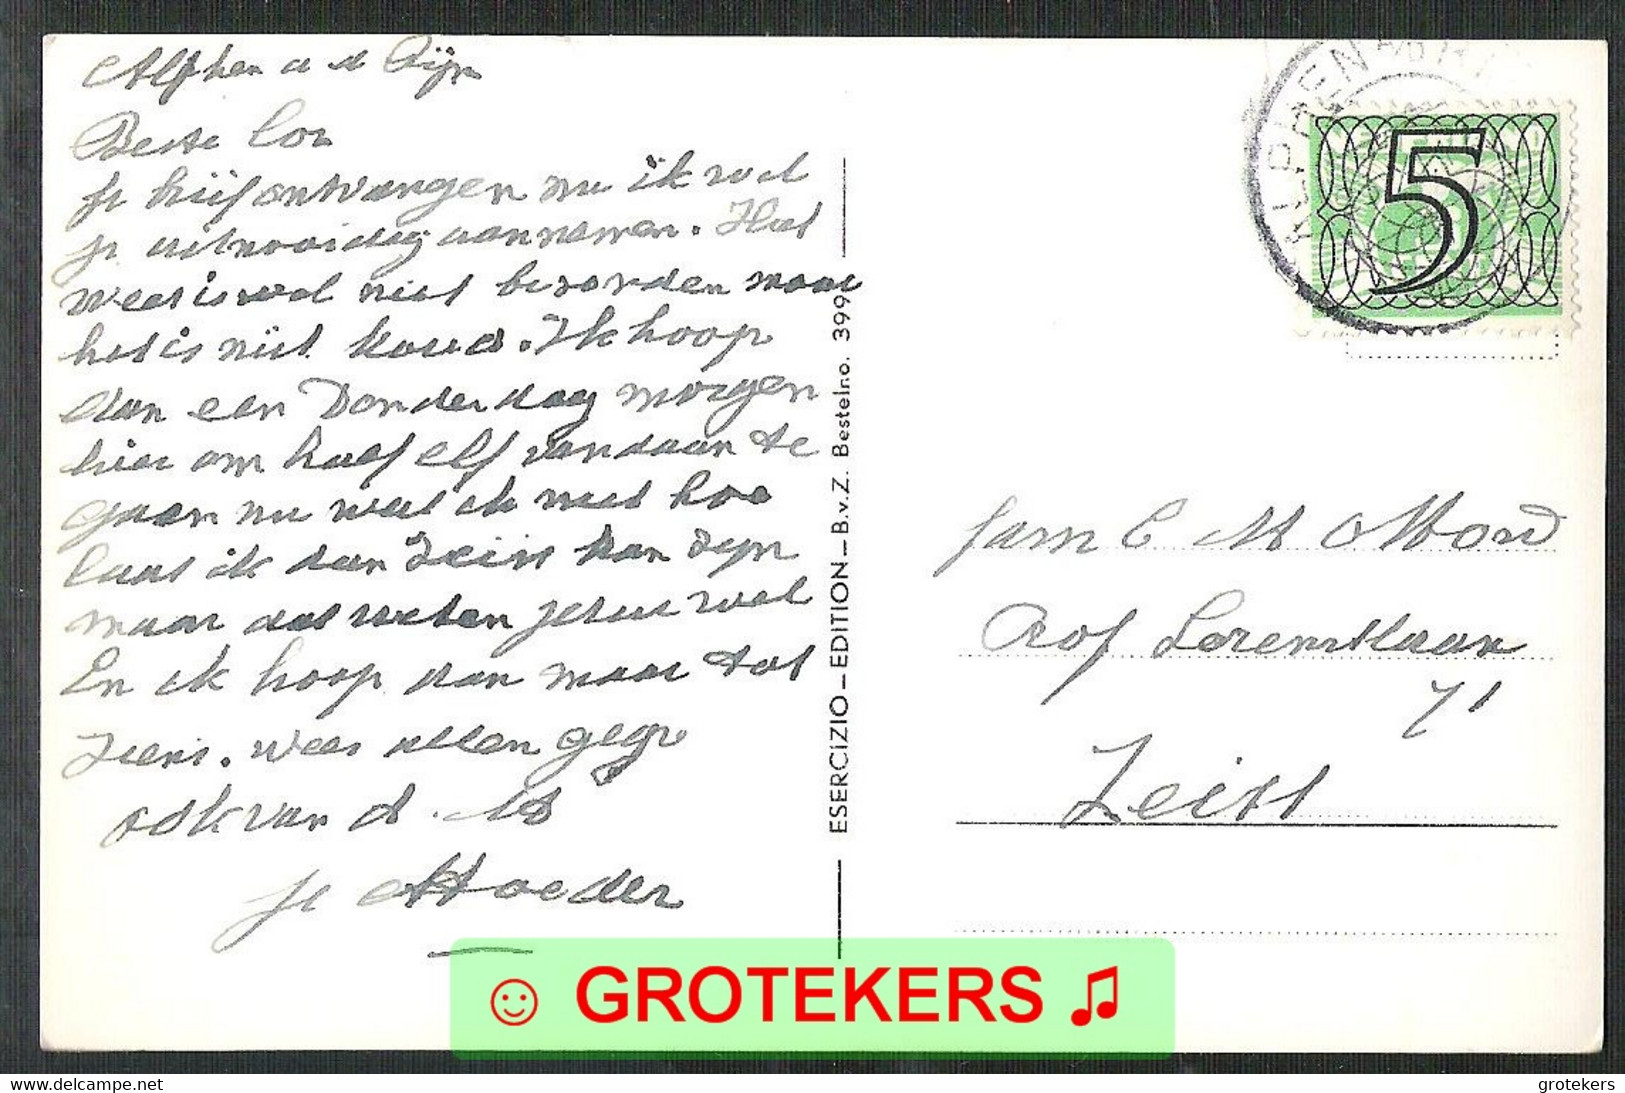 Alphen a d Rijn
Beste Cor
je brief ontvangen nu ik wel
je uitnoodig aannemen. Het
weer is wel niet bezonden maar
het is niet koud. Ik hoop
dan een Donderdag morgen
hier om half elf vandaan te
gaan nu weet ik niet hoe
laat ik dan Zeist kan zijn
maar dat weten jelui wel
En ik hoop dan maar tot
ziens. wees allen gegr
ook van d.
je Moeder
ESERCIZIO – EDITION – B.v.Z. Bestelno. 399
ALPHEN A/D RIJN
5
Fam C M Mond
Prof Lorentzlaan
71
Zeist
☺ GROTEKERS ♫
www.delcampe.net
grotekers